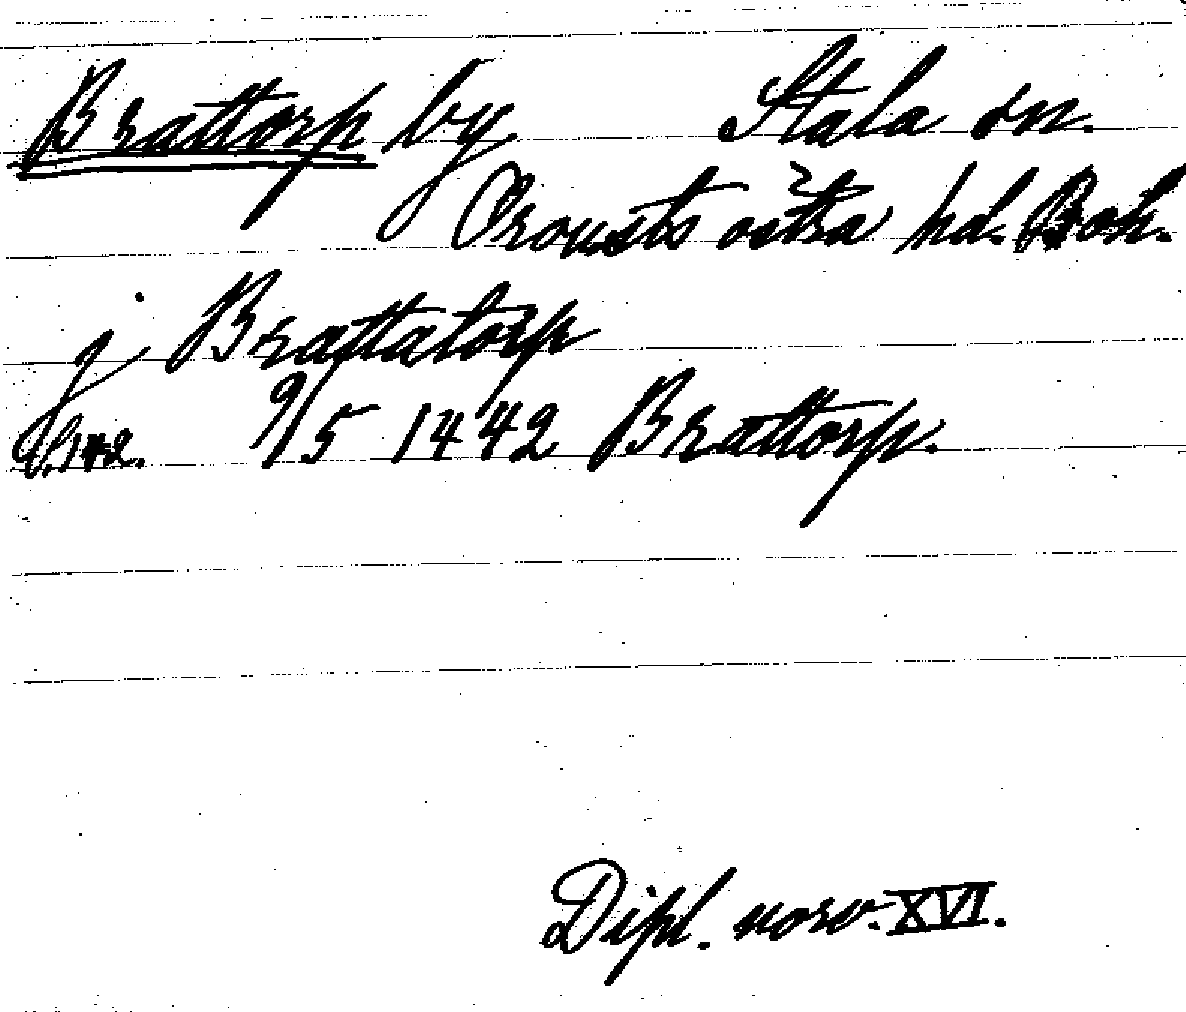 Brattorp by Stala sn.
Orousts östra hd. Boh.
j Brattatorp
S. 142. 9/5 1442 Brattorp.
Dipl. norv. XVI.